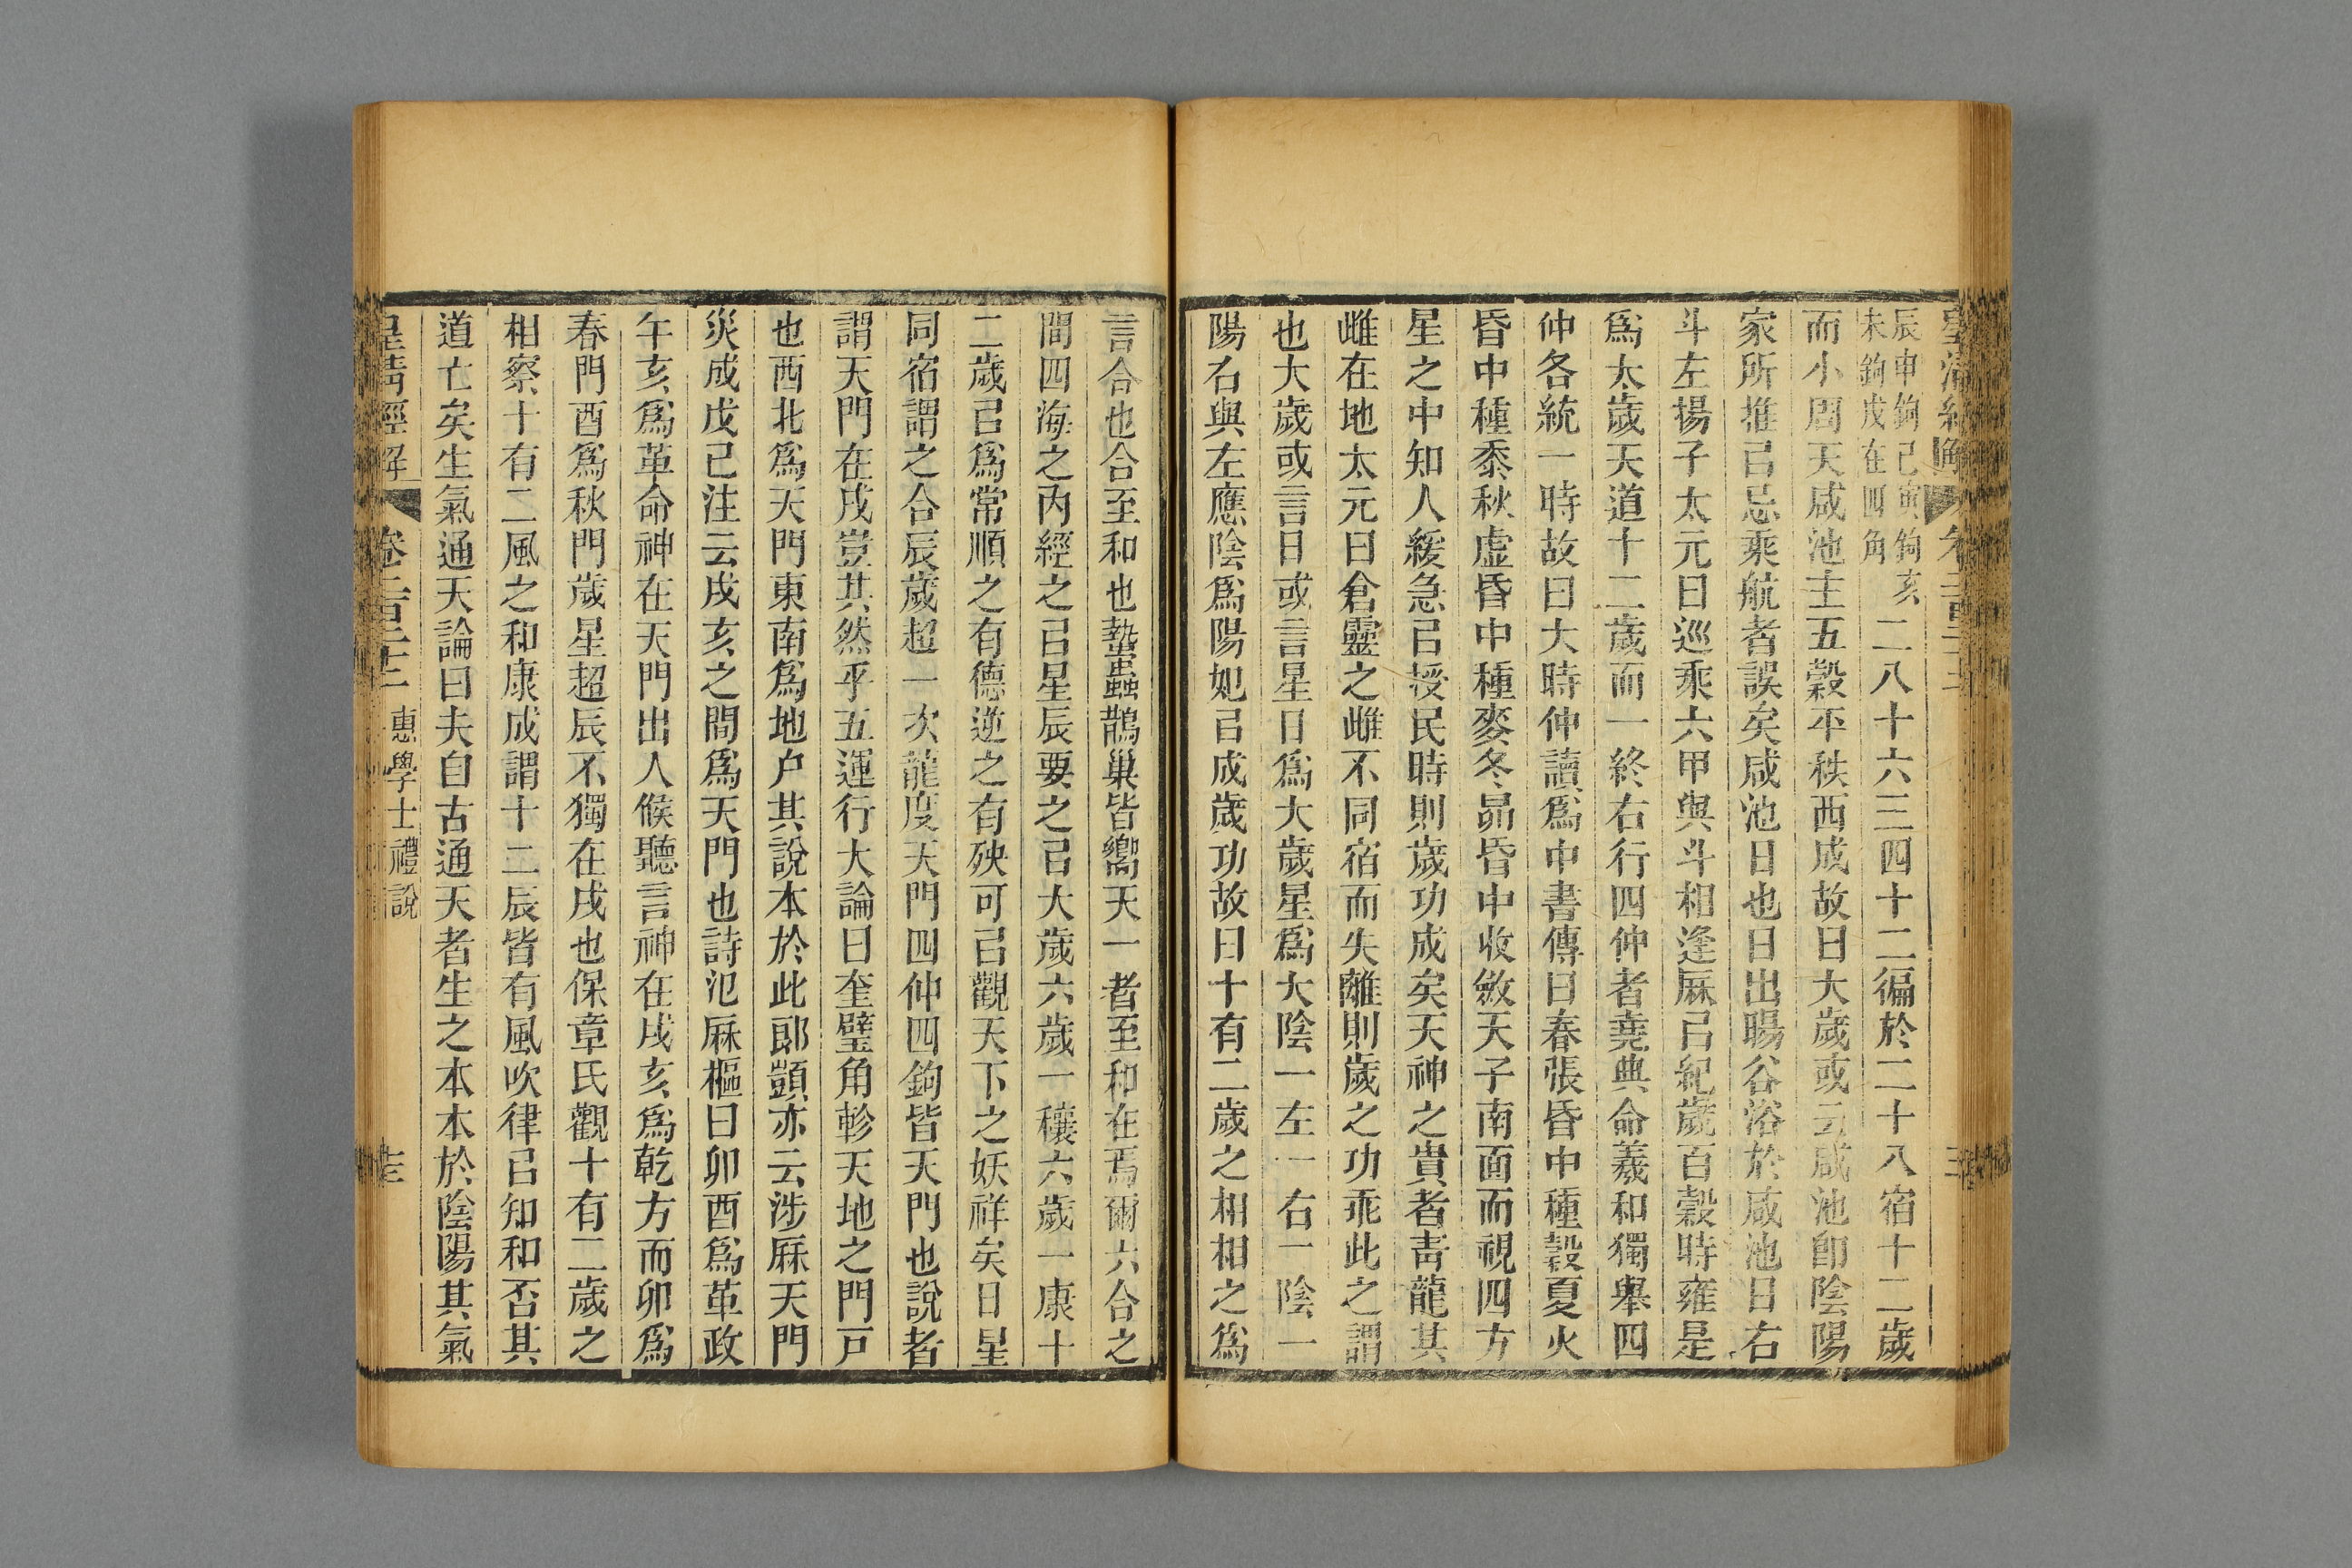 辰申鉤巳寅鉤亥
未鉤戌在四角
二八十六三四十二徧於二十八宿十二歲
而小周天咸池主五穀平秩西成故曰大歲或云咸池卽陰陽
家所推㠯忌乘航者誤矣咸池日也日出暘谷浴於咸池日右
斗左揚子太元曰巡乘六甲與斗相逢厤㠯紀歲百穀時雍是
爲太歲天道十二歲而一終右行四仲者堯典命羲和獨舉四
仲各統一時故曰大時仲讀爲中書傳曰春張昏中種穀夏火
昏中種黍秋虛昏中種麥冬昴昏中收斂天子南面而視四方
星之中知人緩急㠯授民時則歲功成矣天神之貴者靑龍其
雌在地太元曰倉靈之雌不同宿而失離則歲之功乖此之謂
也大歲或言日或言星日爲大歲星爲大陰一左一右一陰一
陽右與左應陰爲陽妃㠯成歲功故曰十有二歲之相相之爲
言合也合至和也蟄蟲鵲巢皆嚮天一者至和在焉爾六合之
間四海之內經之㠯星辰要之㠯大歲六歲一穰六歲一康十
二歲㠯爲常順之有德逆之有殃可㠯觀天下之妖祥矣日星
同宿謂之合辰歲超一次龍度天門四仲四鉤皆天門也說者
謂天門在戌豈其然乎五運行大論曰奎璧角軫天地之門戸
也西北爲天門東南爲地户其說本於此郎顗亦云涉厤天門
災成戊己注云戌亥之間爲天門也詩氾厤樞曰卯酉爲革政
午亥爲革命神在天門出入候聽言神在戌亥爲乾方而卯爲
春門酉爲秋門歲星超辰不獨在戌也保章氏觀十有二歲之
相察十有二風之和康成謂十二辰皆有風吹律㠯知和否其
道亡矣生氣通天論曰夫自古通天者生之本本於陰陽其氣
皇清經解
卷二百二十二
惠學士禮說